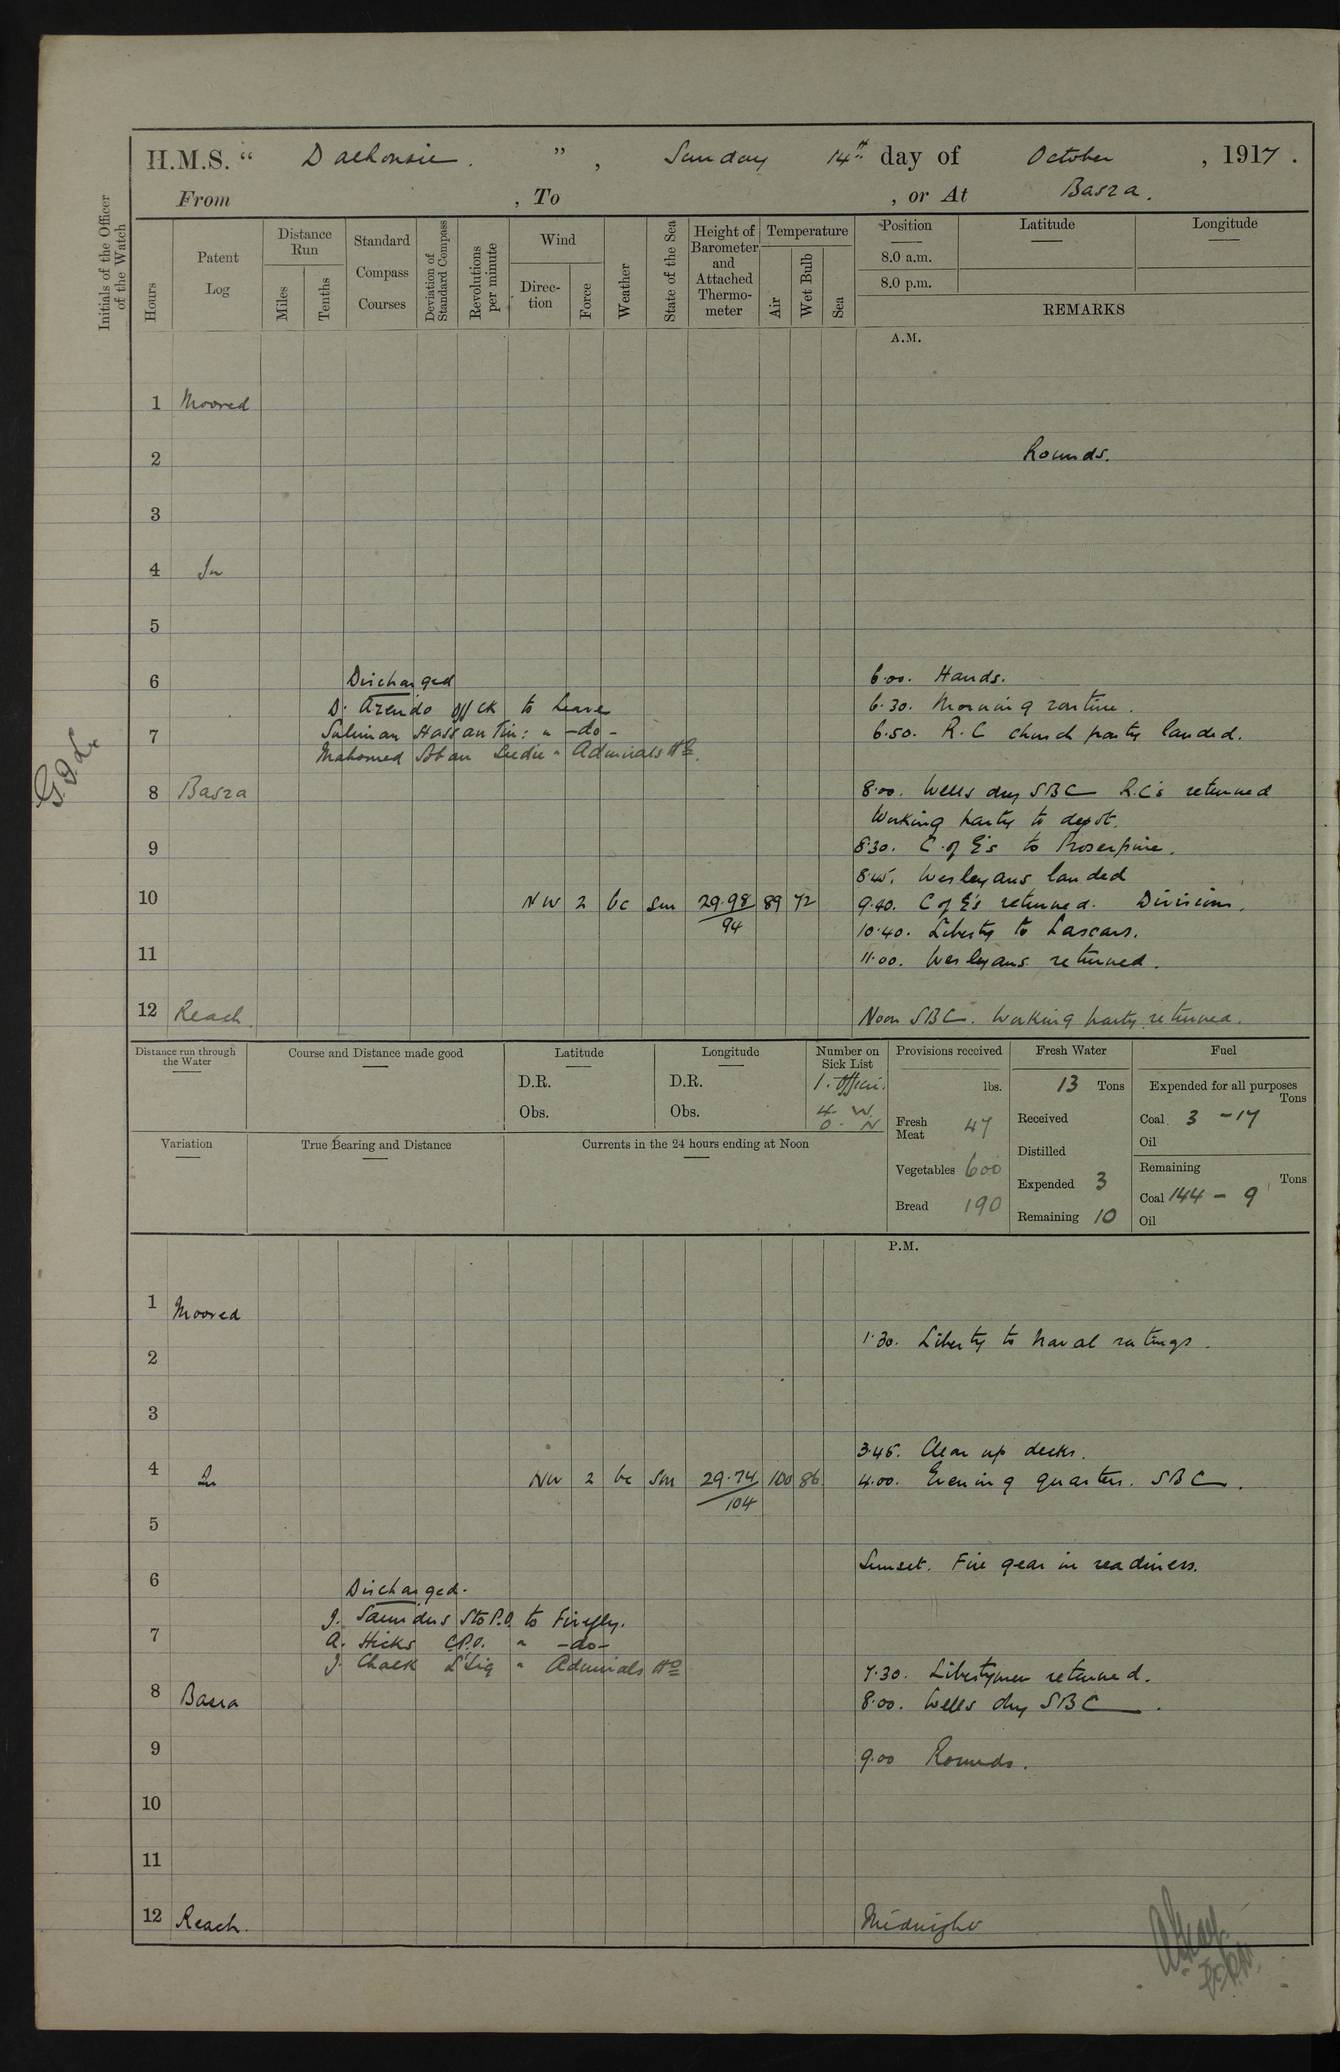 H.M.S. “ Dalhousie. ”, Sunday 14th day of October, 1917.
From , To , or At Basra.
Initials of the Officer of the Watch
Hours
Patent Log
Distance Run
Miles
Tenths
Standard Compass Courses
Deviation of Standard Compass
Revolutions per minute
Wind
Direc-tion
Force
Weather
State of the Sea
Height of Barometer and Attached Thermo-meter
Temperature
Air
Wet Bulb
Sea
Position
8.0 a.m.
8.0 p.m.
Latitude
Longitude
REMARKS
A.M.
1 Moored
2 Rounds.
3
4 In
5
6 Discharged 6.00. Hands.
D. Azendo Off ck to Leave 6.30. Morning routine.
7 Suliman Hassan Tin: " -do- 6.50. R.C church party landed.
Mahomed " Admirals Hd.
8 Basra 8.00. Wells dry SBC R.C's returned
Working party to depot.
9 8.30. C. of E's to Proserpine.
8.45. Wesleyans landed
10 NW 2 bc sm 29.98 89 72 9.40. C of E's returned. Divisions.
94 10.40. Liberty to Lascars.
11 11.00. Wesleyans returned.
12 Reach. Noon SBC. Working party returned.
Distance run through the Water
Course and Distance made good
Latitude
D.R.
Obs.
Longitude
D.R.
Obs.
Number on Sick List
1. Officer.
4. W.
0. N
Provisions received
lbs.
Fresh Meat 47
Vegetables 600
Bread 190
Fresh Water
13 Tons
Received
Distilled
Expended 3
Remaining 10
Fuel
Expended for all purposes
Tons
Coal 3 - 17
Oil
Remaining
Tons
Coal 144 - 9
Oil
Variation
True Bearing and Distance
Currents in the 24 hours ending at Noon
P.M.
1 Moored
1.30. Liberty to Naval ratings.
2
3
3.45. Clear up decks.
4 In NW 2 bc sm 29.74 100 86 4.00. Evening quarters. SBC.
104
5
Sunset. Fire gear in readiness.
6 Discharged.
J. Saunders Sto P.O. to Firefly.
7 A. Hicks C.P.O. " -do-
J. Chalk L'Sig " Admirals Hd 7.30. Libertymen returned.
8 Basra 8.00. Wells dry SBC.
9 9.00 Rounds.
10
11
12 Reach. Midnight